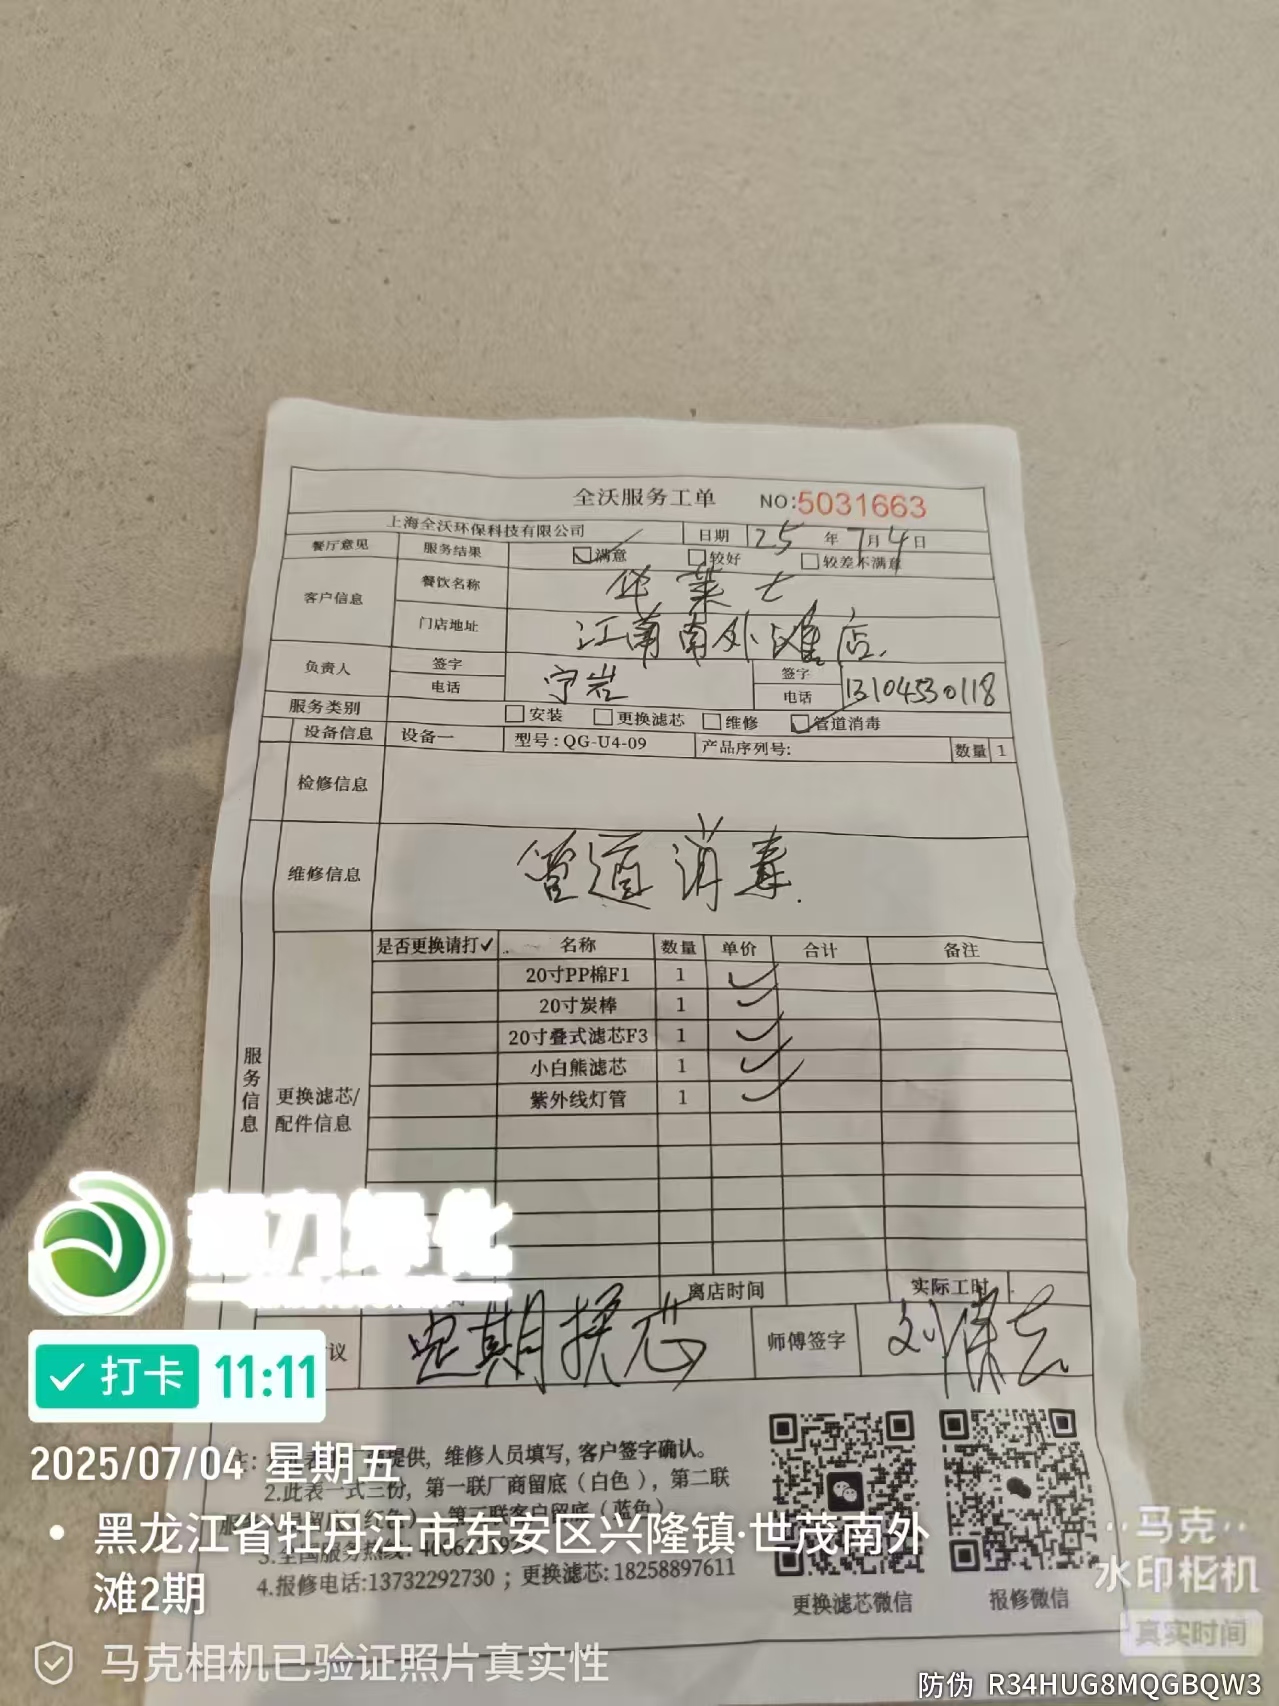 全沃服务工单 NO:5031663
上海全沃环保科技有限公司 日期 25 年 7 月 4 日
餐厅意见 服务结果 满意 较好 较差不满意
客户信息 餐饮名称 华莱士
门店地址 江南南外滩店.
负责人 签字 宁岩 签字
电话 电话 13104530118
服务类别 安装 更换滤芯 维修 管道消毒
设备信息 设备一 型号:QG-U4-09 产品序列号: 数量 1
检修信息
维修信息 管道消毒.
服务信息
更换滤芯/
配件信息
是否更换请打✓ 名称 数量 单价 合计 备注
20寸PP棉F1 1 ✓
20寸炭棒 1 ✓
20寸叠式滤芯F3 1 ✓
小白熊滤芯 1 ✓
紫外线灯管 1 ✓
离店时间 实际工时
议 定期换芯 师傅签字
提供，维修人员填写，客户签字确认。
2.此表一式三份，第一联厂商留底（白色），第二联
第三联客户留底（蓝色）
3.全国服务热线:
4.报修电话:13732292730 ；更换滤芯:18258897611
更换滤芯微信 报修微信
打卡 11:11
2025/07/04 星期五
黑龙江省牡丹江市东安区兴隆镇·世茂南外
滩2期
马克相机已验证照片真实性
马克
水印相机
真实时间
防伪 R34HUG8MQGBQW3